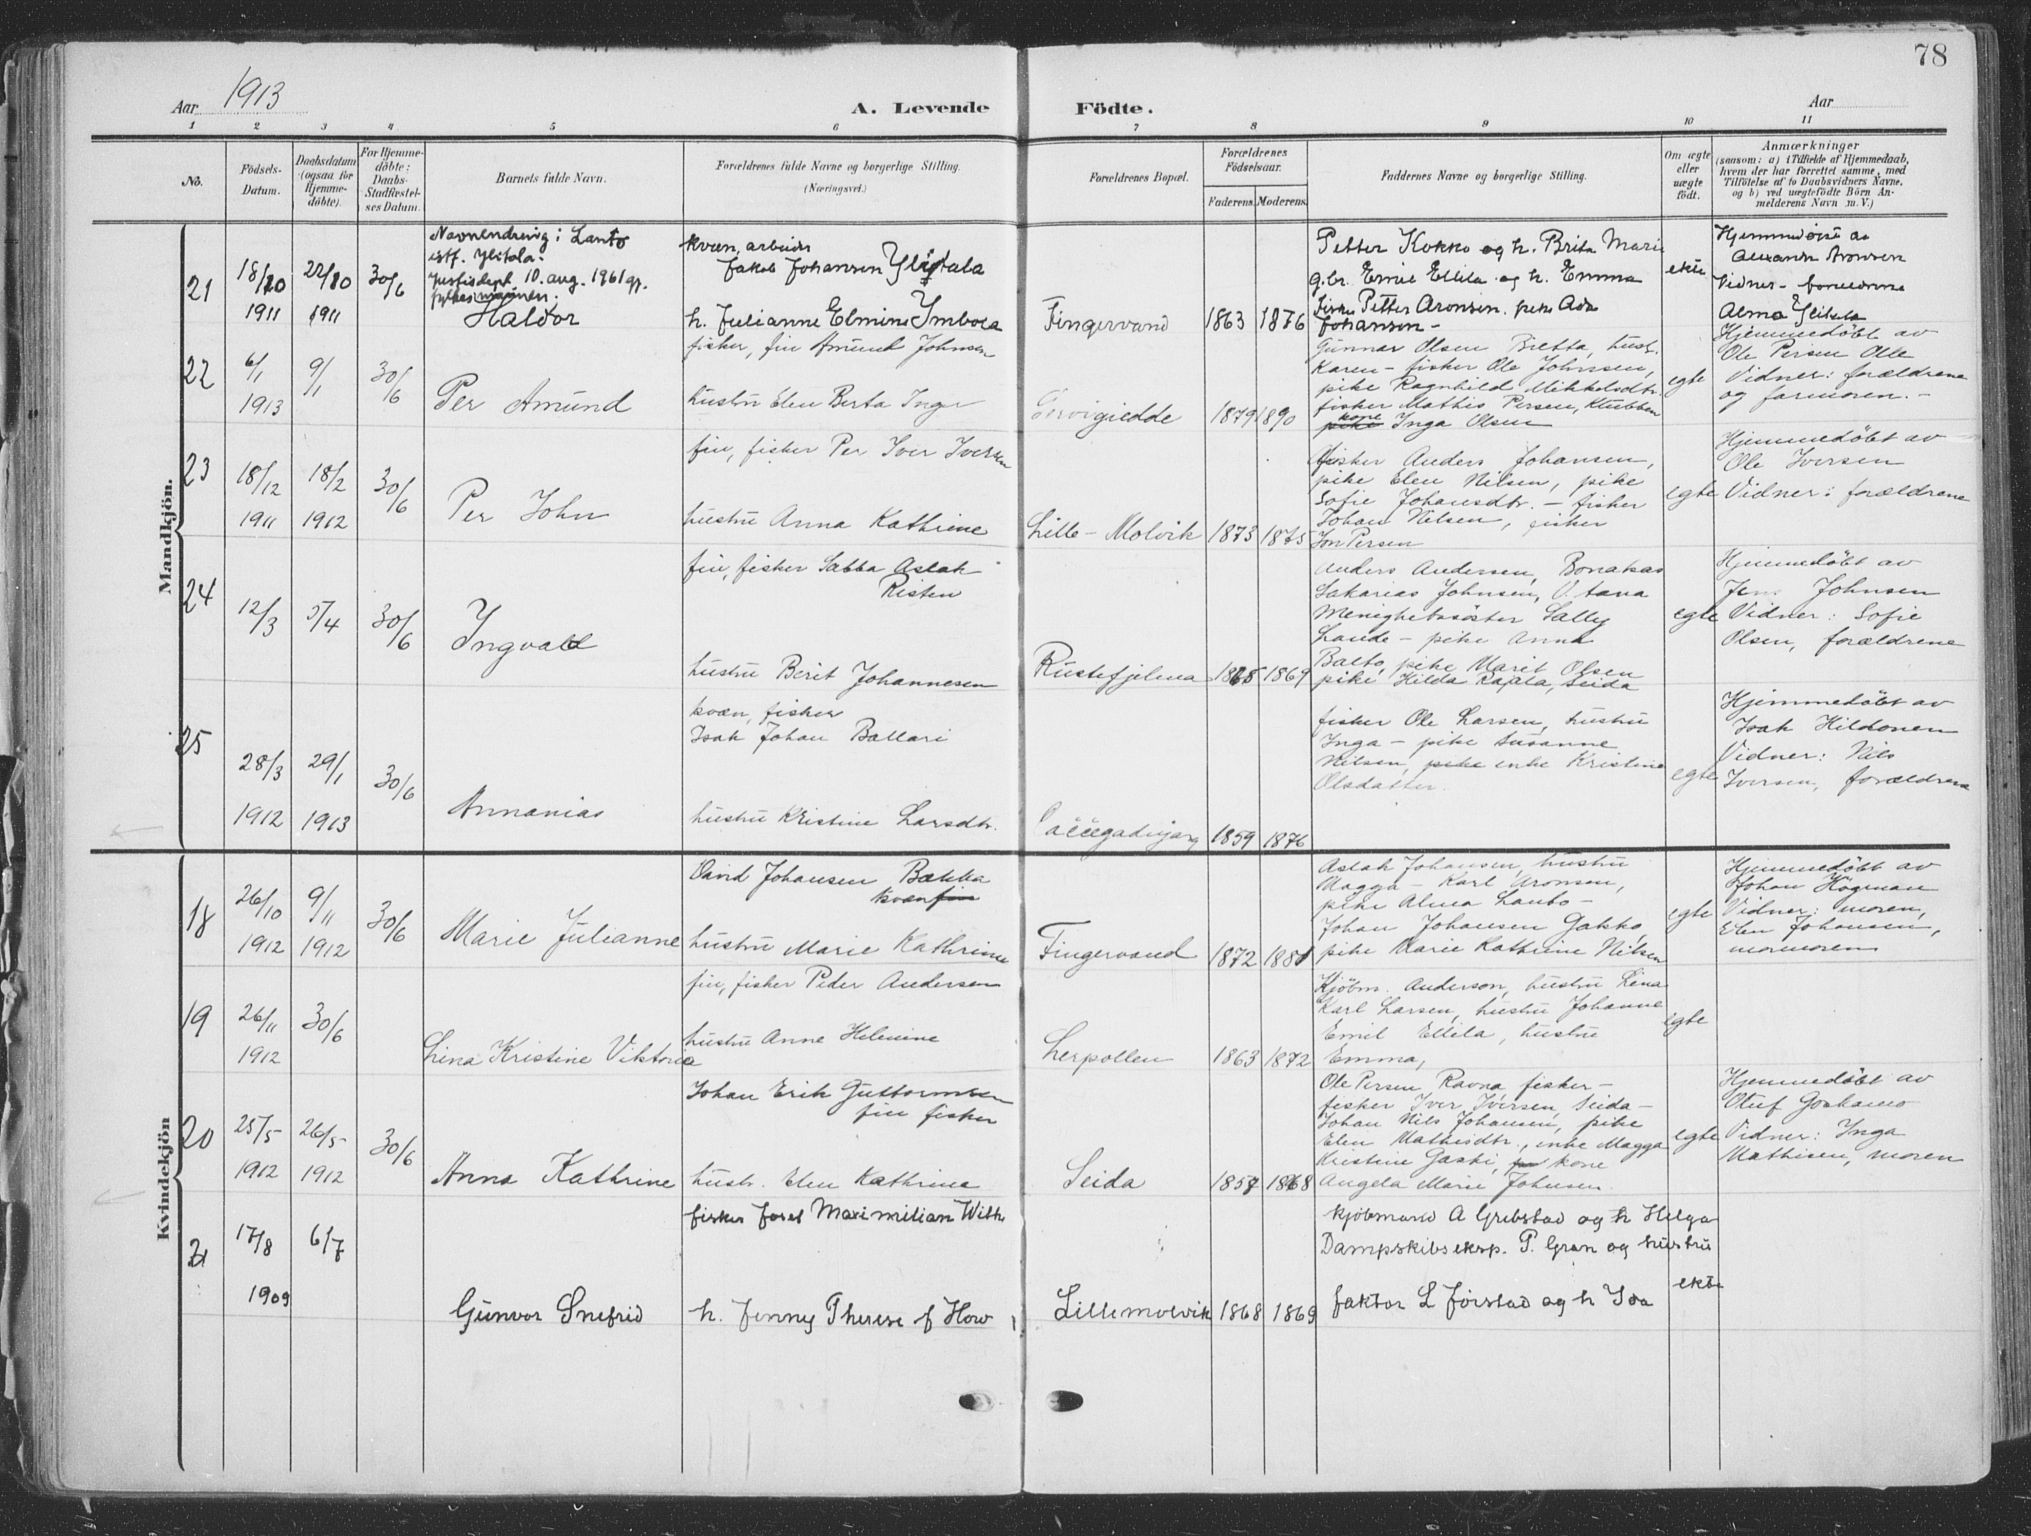 78
Aar 1913
A. Levende Födte.
Aar
1 2 3 4 5 6 7 8 9 10 11
No.
Födsels-
Datum.
Daabsdatum
(ogsaa for
Hjemme-
döbte).
For Hjemme-
döbte:
Daabs-
Stadfæstel-
ses Datum.
Barnets fulde Navn.
Forældrenes fulde Navne og borgerlige Stilling.
(Næringsvei.)
Forældrenes Bopæl.
Forældrenes
Födselsaar.
Faderens. Moderens.
Faddernes Navne og borgerlige Stilling.
Om ægte
eller
uægte
födt.
Anmærkninger
(saasom: a) i Tilfælde af Hjemmedaab,
hvem der har forrettet samme, med
Tilföielse af to Daabsvidners Navne,
og b) ved uægtefödte Börn An-
melderens Navn m. V.)
Mandkjön.
21
18/10
1911
22/10
1911
30/6
Navnendring i Lanto
istf. Ylitala.
Justisdept. 10. aug. 1961 gj.
Haldor
kvæn, arbeider
Jakob Johansen Ylitala
h. Julianne Elmine
Fingervand
1863 1876
Petter Kokko og h. Brita Marie
g.br. Emil Ellila og h. Emma
fisker Petter Aronsen. pike Ada
Johansen -
ekte
Hjemmedøpt av
Aronsen
Vidner - foreldrene
Alma Ylitala
22
6/1
1913
9/1
30/6
Per Amund
fisker, fin Amund Johnsen
hustru Elen Berta Inger
1879 1890
Gunnar Olsen Bietta, hust.
Karen - fisker Ole Johnsen,
pike Ragnhild Mikkelsdtr.
fisker Mathis Persen, Klubben
kone
pike Inga Olsen
egte
Hjemmedøbt av
Ole Persen
Vidner: forældrene
og farmoren. -
23
18/12
1911
18/2
1912
30/6
Per John
fin, fisker Per Iver Iversen
hustru Anna Kathrine
Lille-Molvik
1873 1875
fisker Anders Johansen,
pike Elen Nilsen, pike
Sofie Johansdtr. - fisker
Johan Nilsen, fisker
Jon Persen
egte
Hjemmedøbt av
Ole Iversen
Vidner: forældrene
24
12/3
5/4
30/6
Ingvald
fin, fisker Sabba Aslak
Risten
hustru Berit Johannesen
Rustefjelma
1865 1869
Anders Andersen, Bonakas
Sakarias Johnsen, V. tana
Menighetssöster Sally
Lande - pike Anna
Balto, pike Marit Olsen
pike Hilda Rajala, Seida
egte
Hjemmedøbt av
Jens Johnsen
Vidner: Sofie
Olsen, forældrene
25
28/3
1912
29/1
1913
30/6
Annanias
kvæn, fisker
Isak Johan Ballari
hustru Kristine Larsdtr.
1859 1876
fisker Ole Larsen, hustru
Inga - pike Susanne
Nilsen, pike enke Kristine
Olsdatter.
egte
Hjemmedøbt av
Isak Hildonen
Vidner: Nils
Iversen, forældrene
Kvindekjön
18
26/10
1912
9/11
1912
30/6
Marie Julianne
David Johansen Bækka
kvæn fin
hustru Marie Kathrine
Fingervand
1872 1881
Aslak Johansen, hustru
Magga - Karl Aronsen,
pike Alma Lanto -
Johan Johansen Gakko
pike Marie Kathrine Nilsen
egte
Hjemmedøbt av
Johan Högman
Vidner: moren,
Elen Johansen,
mormoren
19
26/11
1912
30/6
Lina Kristine Viktoria
fin, fisker Peder Andersen
hustru Anne Helmine
Lerpollen
1863 1872
Kjöbm. Anderson, hustru Lena
Karl Larsen, hustru Johanne
Emil Ellila, hustru
Emma,
egte
20
25/5
1912
26/5
1912
30/6
Anna Kathrine
Johan Erik Guttormsen
fin fisker
hustr. Elen Kathrina
Seida
1857 1868
Ole Persen, Ravna fisker -
fisker Iver Iversen, Seida -
Johan Nils Johansen, pike
Elen Mathisdtr., enke Magga
Kristine Gaski, kone
Angela Marie Johnsen.
egte
Hjemmedøbt av
Oluf
Vidner: Inga
Mathisen, moren
21
17/8
1909
6/7
Gunvor Snefrid
fisker Josef Maximilian With
h. Jenny Therese f How
Lillemolvik
1868 1869
kjöbmand A Grebstad og h Helga
Dampskibseksp. P. Gran og hustru
faktor L Førstad og h Ida
ekte